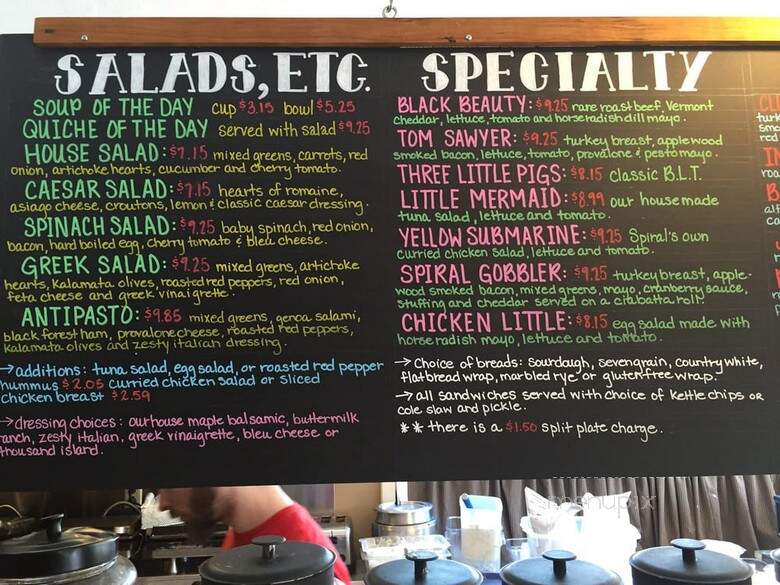 SALADS, ETC.
SOUP OF THE DAY cup $3.15 bowl $5.25
QUICHE OF THE DAY served with salad $9.25
HOUSE SALAD: $7.15 mixed greens, carrots, red
onion, artichoke hearts, cucumber and cherry tomato.
CAESAR SALAD: $7.15 hearts of romaine,
asiago cheese, croutons, lemon & classic caesar dressing.
SPINACH SALAD: $9.25 baby spinach, red onion,
bacon, hard boiled egg, cherry tomato & bleu cheese.
GREEK SALAD: $9.25 mixed greens, artichoke
hearts, kalamata olives, roasted red peppers, red onion,
feta cheese and greek vinaigrette.
ANTIPASTO: $9.85 mixed greens, genoa salami,
black forest ham, provalone cheese, roasted red peppers,
kalamata olives and zesty italian dressing.
→ additions: tuna salad, egg salad, or roasted red pepper
hummus $2.05 curried chicken salad or sliced
chicken breast $2.59
→ dressing choices: our house maple balsamic, buttermilk
ranch, zesty italian, greek vinaigrette, bleu cheese or
thousand island.
SPECIALTY
BLACK BEAUTY: $9.25 rare roast beef, Vermont
cheddar, lettuce, tomato and horseradish dill mayo.
TOM SAWYER: $9.25 turkey breast, applewood
smoked bacon, lettuce, tomato, provalone & pesto mayo.
THREE LITTLE PIGS: $8.15 classic B.L.T.
LITTLE MERMAID: $8.99 our housemade
tuna salad, lettuce and tomato.
YELLOW SUBMARINE: $9.25 Spiral's own
curried chicken salad, lettuce and tomato.
SPIRAL GOBBLER: $9.25 turkey breast, apple-
wood smoked bacon, mixed greens, mayo, cranberry sauce,
stuffing and cheddar served on a ciabatta roll.
CHICKEN LITTLE: $8.15 egg salad made with
horseradish mayo, lettuce and tomato.
→ Choice of breads: sourdough, sevengrain, country white,
flatbread wrap, marbled rye or gluten free wrap.
→ all sandwiches served with choice of kettle chips or
cole slaw and pickle.
** there is a $1.50 split plate charge.